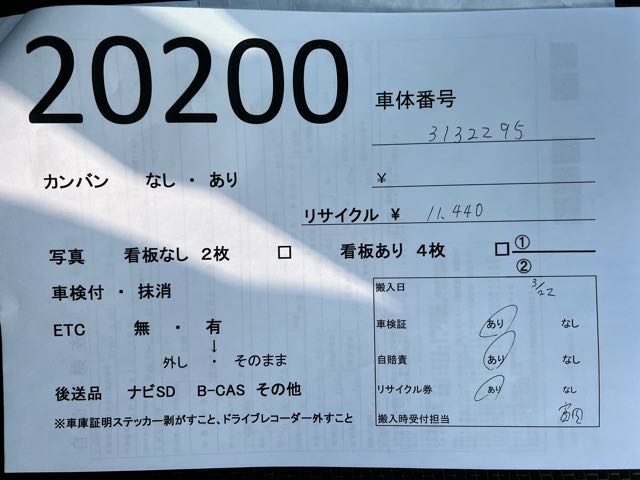 20200
車体番号
3132295
カンバン なし ・ あり
¥
リサイクル ¥ 11,440
写真 看板なし 2枚 □ 看板あり 4枚 □ ①
②
車検付 ・ 抹消
ETC 無 ・ 有
↓
外し ・ そのまま
後送品 ナビSD B-CAS その他
※車庫証明ステッカー剥がすこと、ドライブレコーダー外すこと
搬入日 3/22
車検証 あり なし
自賠責 あり なし
リサイクル券 あり なし
搬入時受付担当